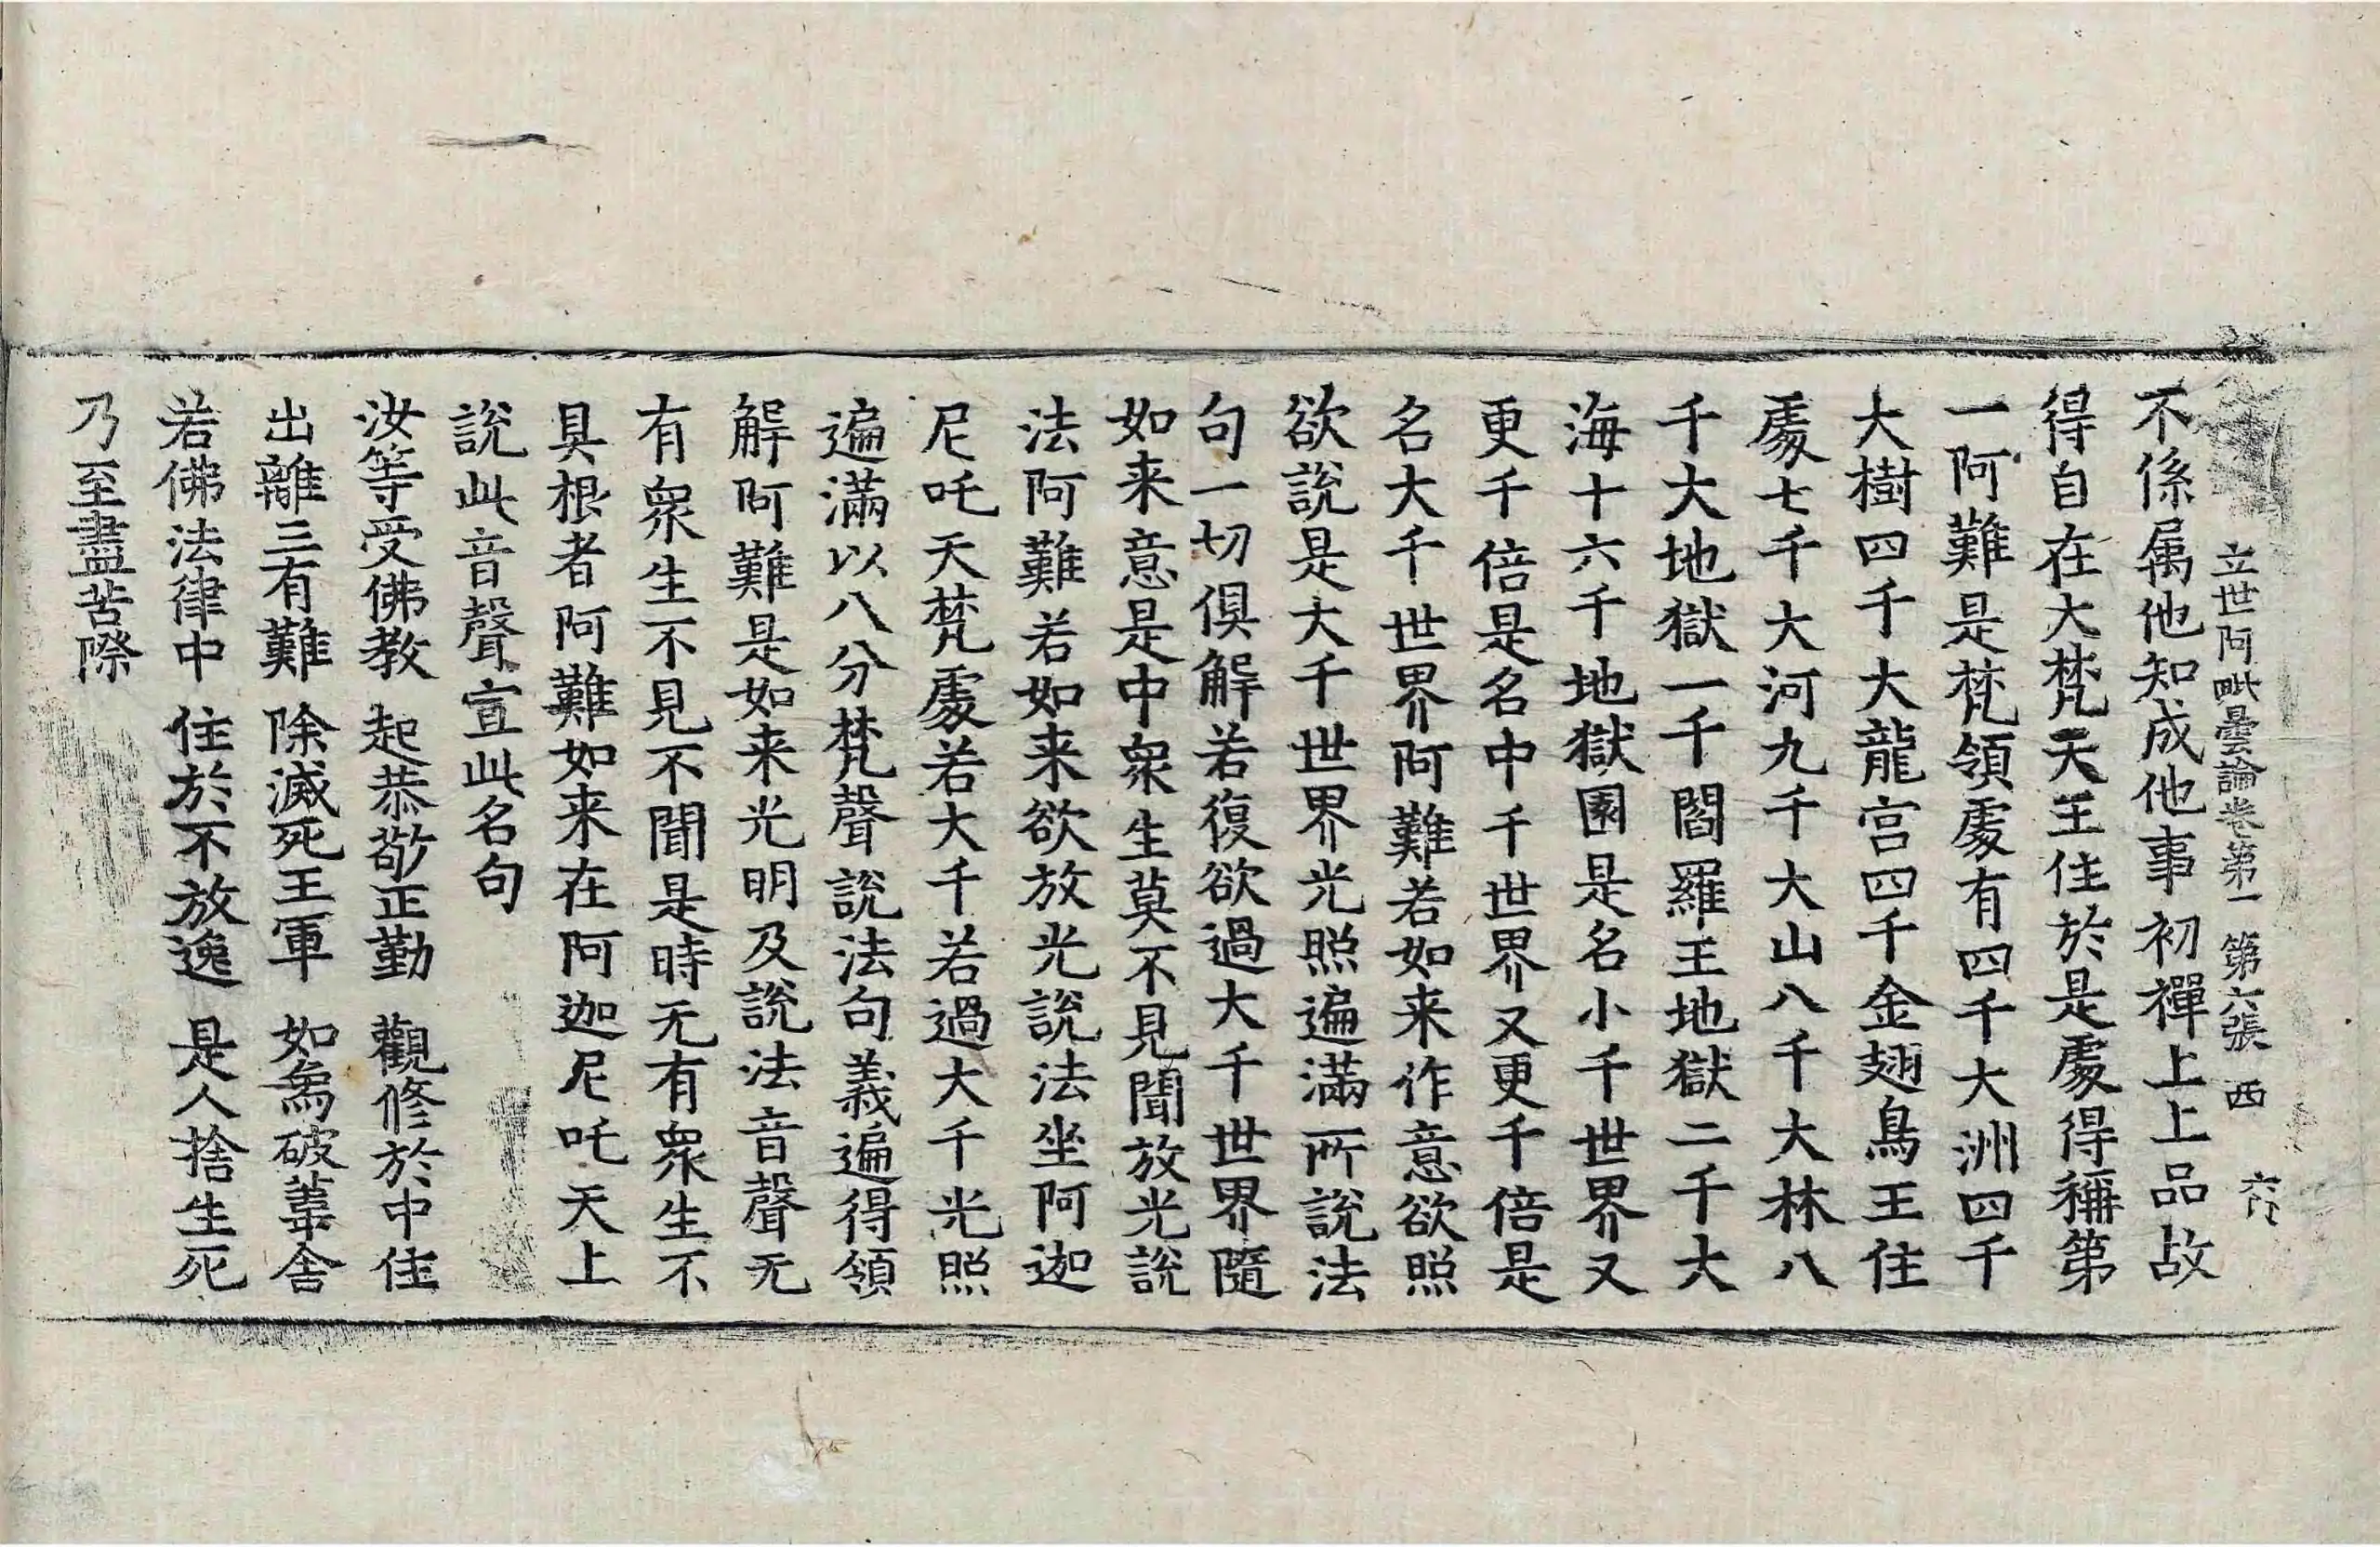 立世阿毗曇論卷第一 第六張 西
不係属他知成他事初禪上上品故
得自在大梵天王住於是處得稱第
一阿難是梵領處有四千大洲四千
大樹四千大龍宫四千金翅鳥王住
處七千大河九千大山八千大林八
千大地獄一千閻羅王地獄二千大
海十六千地獄園是名小千世界又
更千倍是名中千世界又更千倍是
名大千世界阿難若如来作意欲照
欲說是大千世界光照遍滿所說法
句一切俱解若復欲過大千世界隨
如来意是中衆生莫不見聞放光說
法阿難若如来欲放光說法坐阿迦
尼吒天梵處若大千若過大千光照
遍滿以八分梵聲說法句義遍得領
解阿難是如来光明及說法音聲无
有衆生不見不聞是時无有衆生不
具根者阿難如来在阿迦尼吒天上
說此音聲宣此名句
汝等受佛教 起恭敬正勤 觀修於中住
出離三有難 除滅死王軍 如為破葦舍
若佛法律中 住於不放逸 是人捨生死
乃至盡苦際